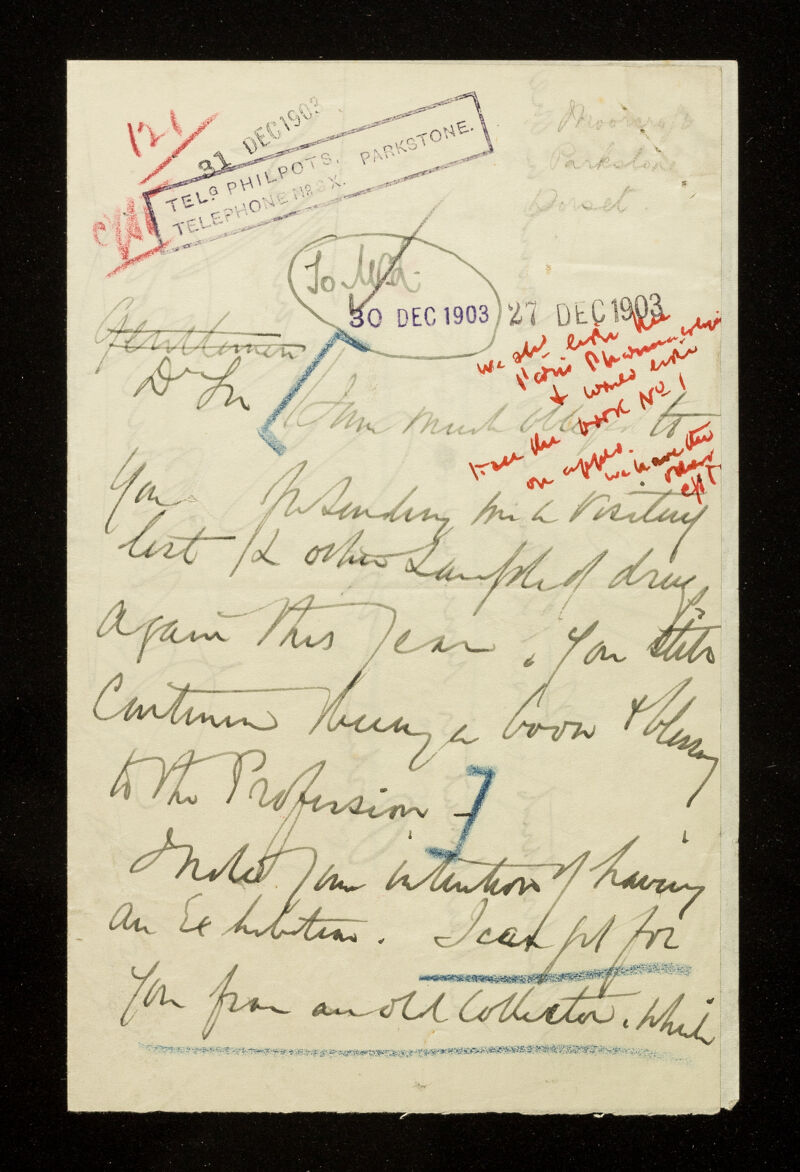 121
31 DEC 1903
TELS PHILPOTS. PARKSTONE.
TELEPHONE No 3X.
Moorcroft
Parkstone
Dorset.
To
30 DEC 1903
27 DEC 1903
Gentlemen
Dr Sir
I am much obliged to
you for sending me a Visiting
list & other Sample of drugs
again this year. You
Continue being a boon & blessing
to the Profession -
I note your intention of having
an Exhibition. I can get for
you from an old Collector. which
we shd like the
Paris Pharmacologia
& would like
to see the book No 1
on appro.
we have the
others